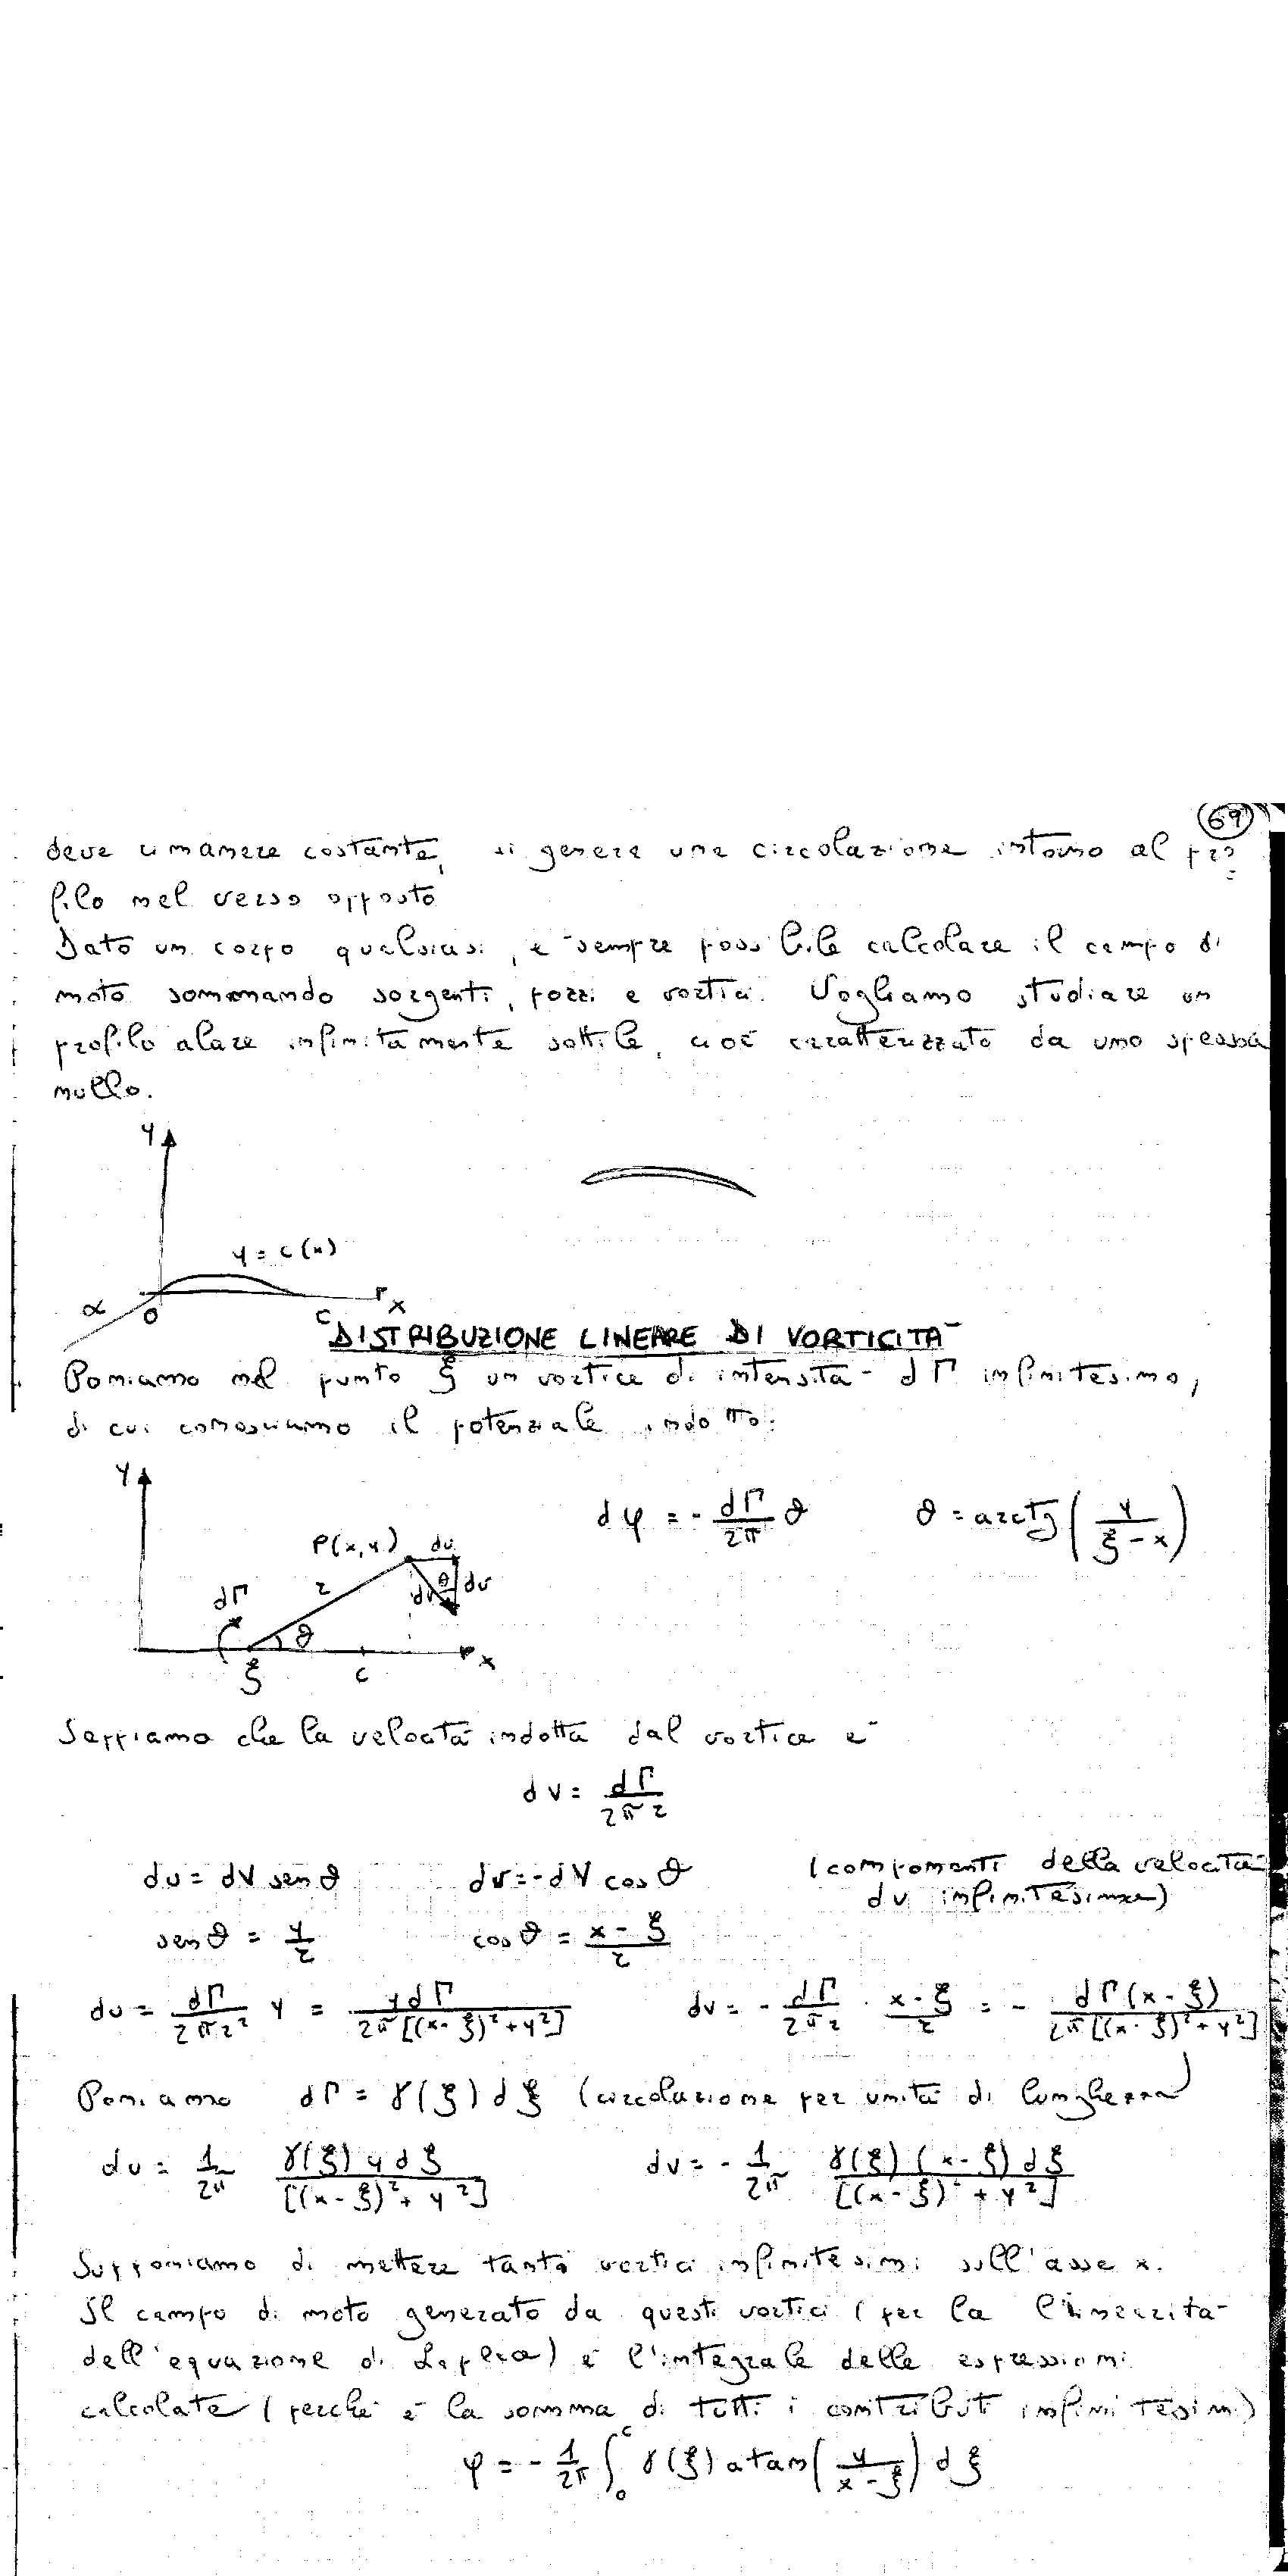 69
deve rimanere costante, si genera una circolazione intorno al pro
filo nel verso opposto
Dato un corpo qualsiasi, è sempre possibile calcolare il campo di
moto sommando sorgenti, pozzi e vortici. Vogliamo studiare un
profilo alare infinitamente sottile, cioè caratterizzato da uno spessore
nullo.
y
y = c(x)
α O c x
DISTRIBUZIONE LINEARE DI VORTICITÀ
Poniamo nel punto ξ un vortice di intensità dΓ infinitesimo,
di cui conosciamo il potenziale indotto:
y
dφ = - dΓ/2π θ θ = arctg (y/(ξ - x))
P(x,y) du
r θ dv
dΓ dV
θ
ξ c x
Sappiamo che la velocità indotta dal vortice è
dv = dΓ/2πr
du = dV sen θ dv = -dV cos θ (componenti della velocità
dv infinitesime)
sen θ = y/r cos θ = (x - ξ)/r
du = dΓ/2πr² y = y dΓ/2π[(x - ξ)² + y²] dv = - dΓ/2πr · (x - ξ)/r = - dΓ(x - ξ)/2π[(x - ξ)² + y²]
Poniamo dΓ = γ(ξ) dξ (circolazione per unità di lunghezza)
du = 1/2π γ(ξ) y dξ/[(x - ξ)² + y²] dv = - 1/2π γ(ξ) (x - ξ) dξ/[(x - ξ)² + y²]
Supponiamo di mettere tanti vortici infinitesimi sull'asse x.
Il campo di moto generato da questi vortici (per la linearità
dell'equazione di Laplace) è l'integrale delle espressioni
calcolate (perché è la somma di tutti i contributi infinitesimi)
φ = - 1/2π ∫₀ᶜ γ(ξ) atan(y/(x - ξ)) dξ